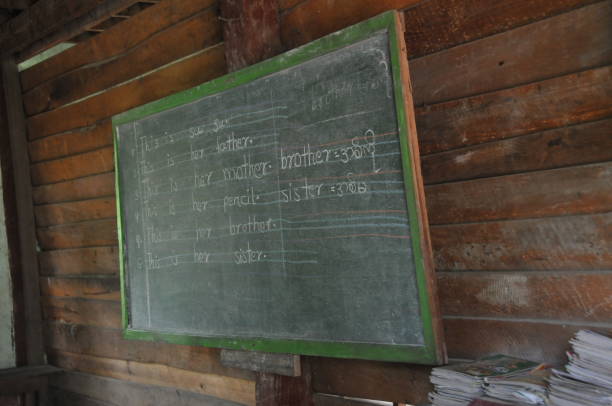 This is su su.
This is her father.
This is her mother. brother = အစ်ကို
This is her pencil. sister = အစ်မ
This is her brother.
This is her sister.